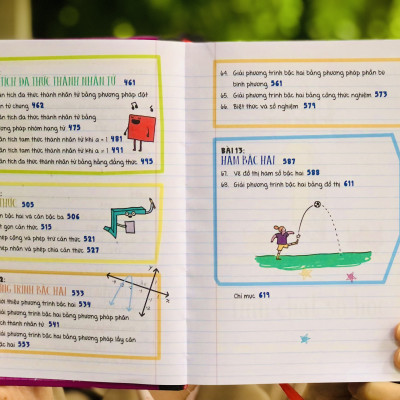 TÍCH ĐA THỨC THÀNH NHÂN TỬ 461
ân tích đa thức thành nhân tử bằng phương pháp đặt
ân tử chung 462
ân tích đa thức thành nhân tử bằng
ương pháp nhóm hạng tử 475
ân tích tam thức thành nhân tử khi a = 1 481
ân tích tam thức thành nhân tử khi a ≠ 1 491
ân tích đa thức thành nhân tử bằng hằng đẳng thức 495
THỨC 505
n bậc hai và căn bậc ba 506
t gọn căn thức 515
hép cộng và phép trừ căn thức 521
hép nhân và phép chia căn thức 527
NG TRÌNH BẬC HAI 533
iới thiệu phương trình bậc hai 534
iải phương trình bậc hai bằng phương pháp phân
ích thành nhân tử 541
iải phương trình bậc hai bằng phương pháp lấy căn
ậc hai 553
Y
X
64. Giải phương trình bậc hai bằng phương pháp phần bù
bình phương 561
65. Giải phương trình bậc hai bằng công thức nghiệm 573
66. Biệt thức và số nghiệm 579
BÀI 13:
HÀM BẬC HAI 587
67. Vẽ đồ thị hàm số bậc hai 588
68. Giải phương trình bậc hai bằng đồ thị 611
Chỉ mục 619